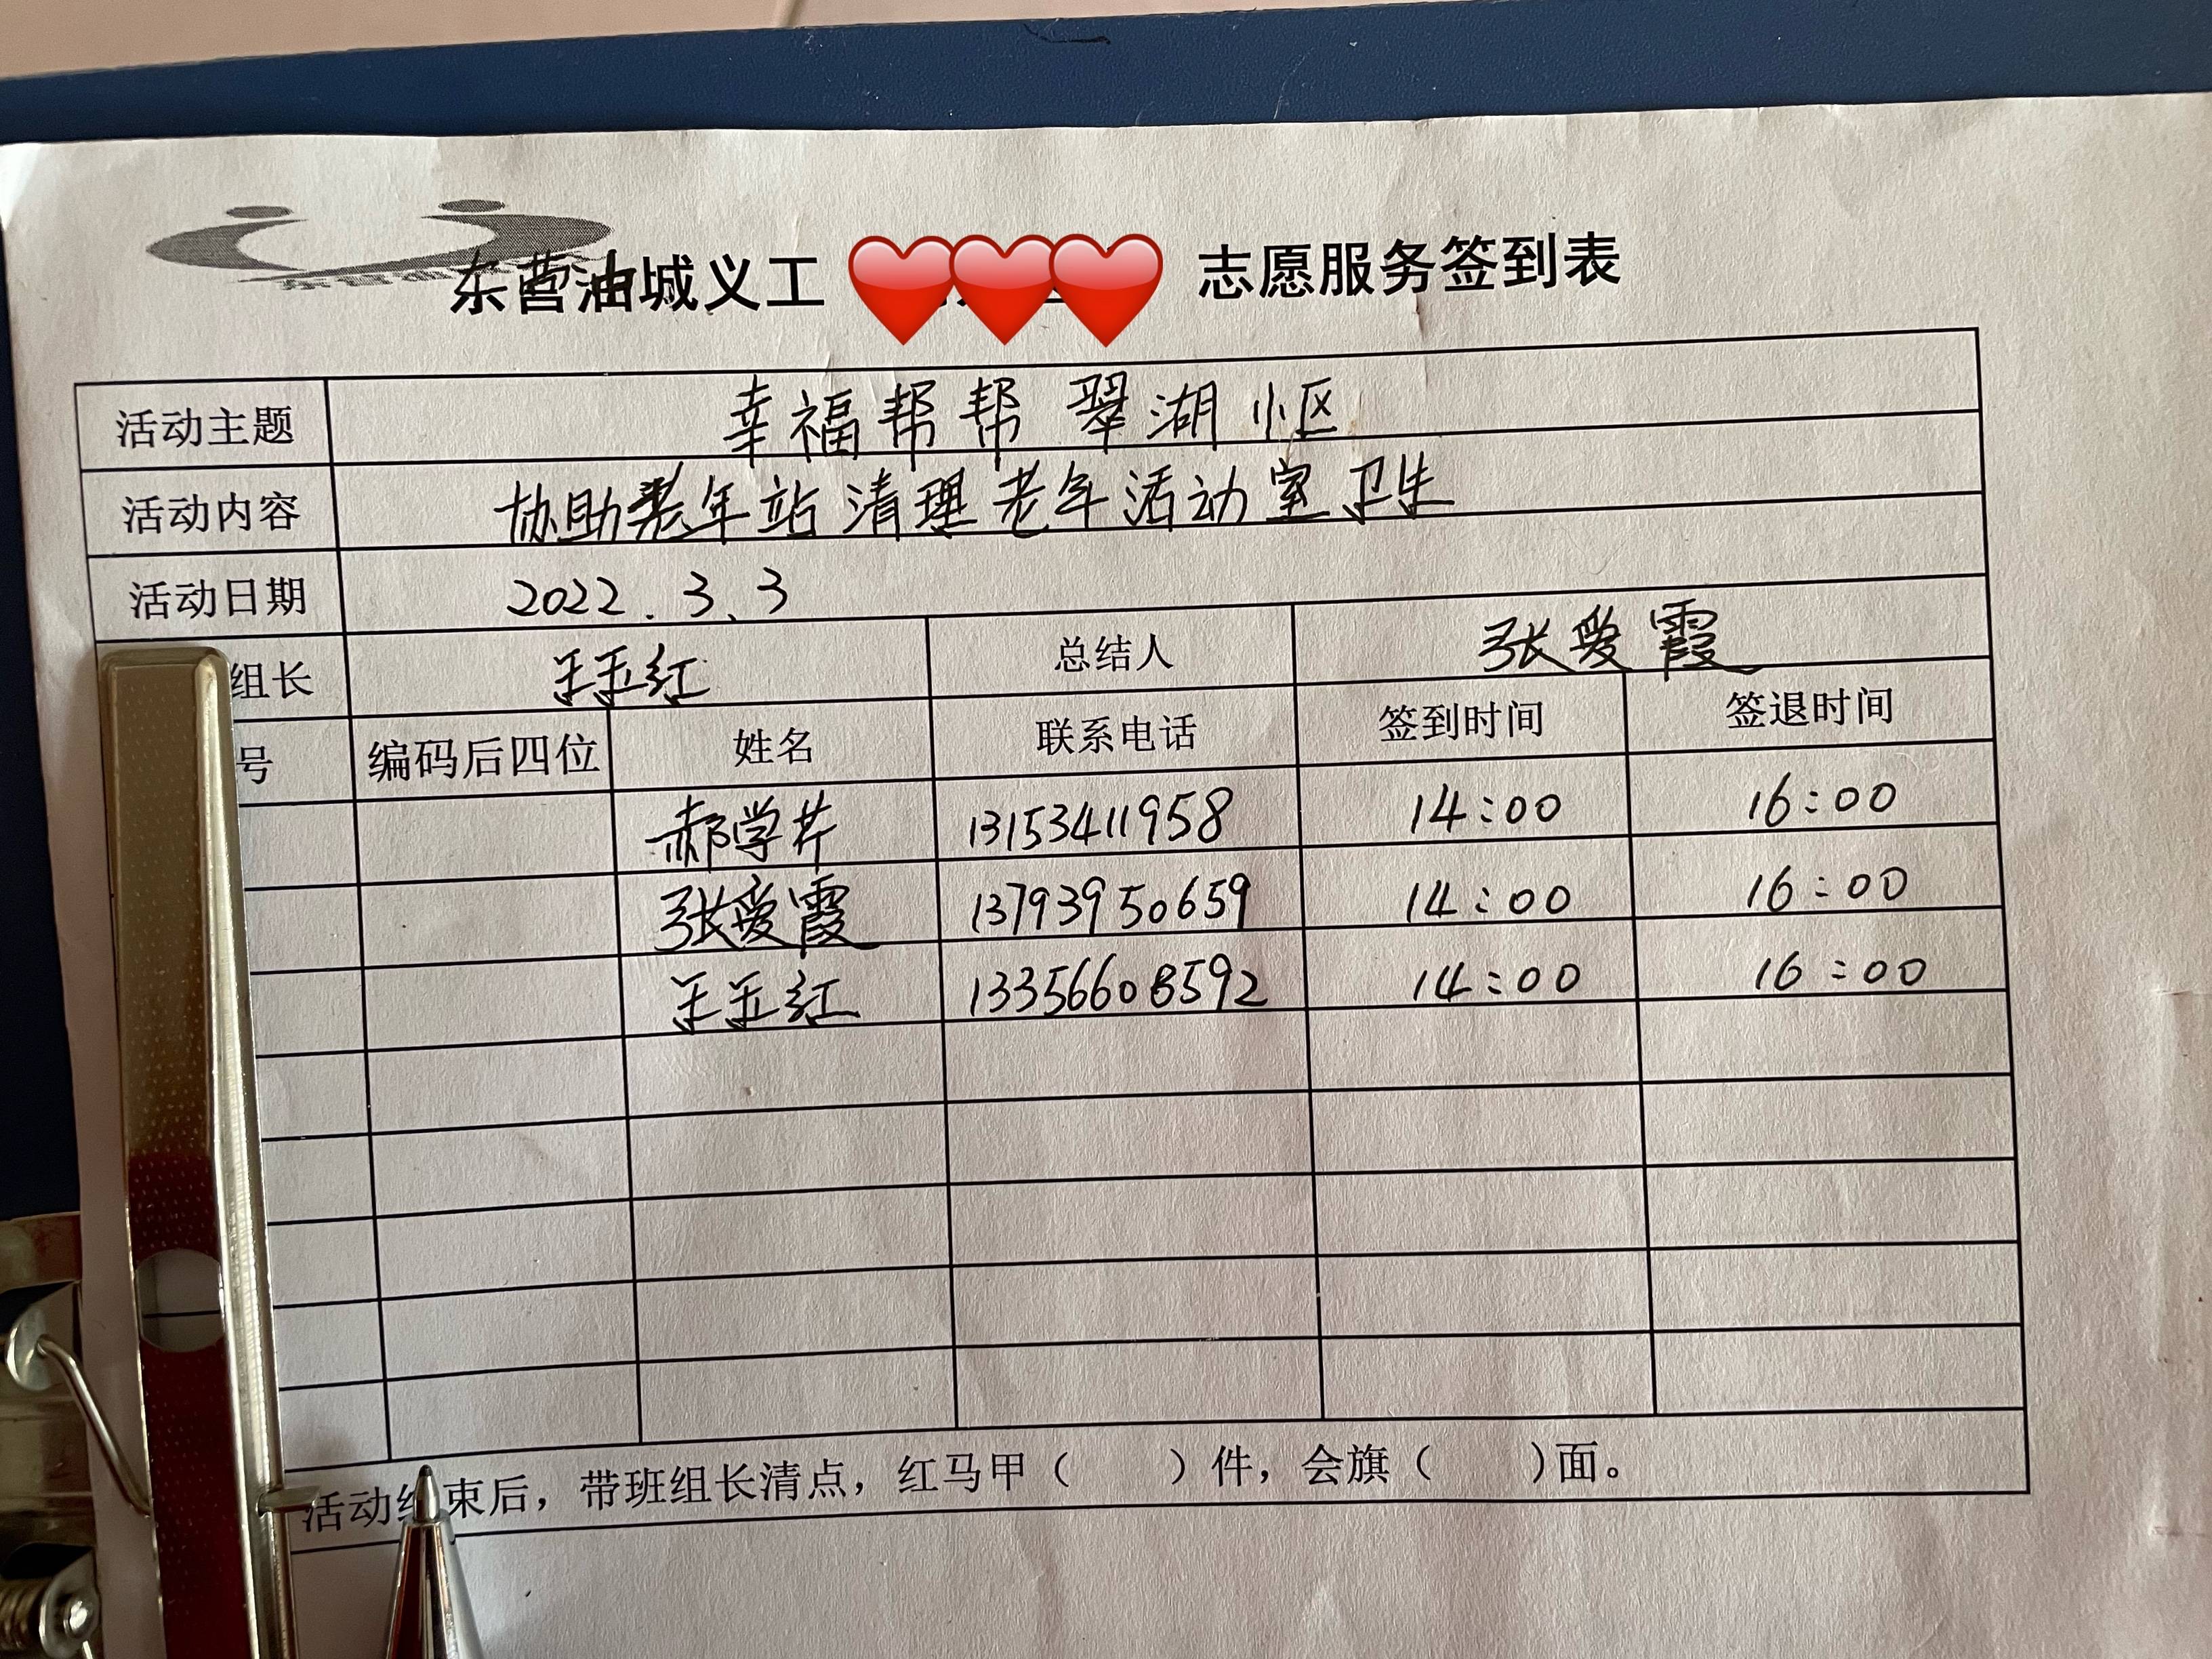 东营油城义工 志愿服务签到表
活动主题 幸福帮帮 翠湖小区
活动内容 协助老年站清理老年活动室卫生
活动日期 2022.3.3
组长 王玉红 总结人 张爱霞
号 编码后四位 姓名 联系电话 签到时间 签退时间
郝学芹 13153411958 14:00 16:00
张爱霞 13793950659 14:00 16:00
王玉红 13356608592 14:00 16:00
活动结束后，带班组长清点，红马甲（ ）件，会旗（ ）面。